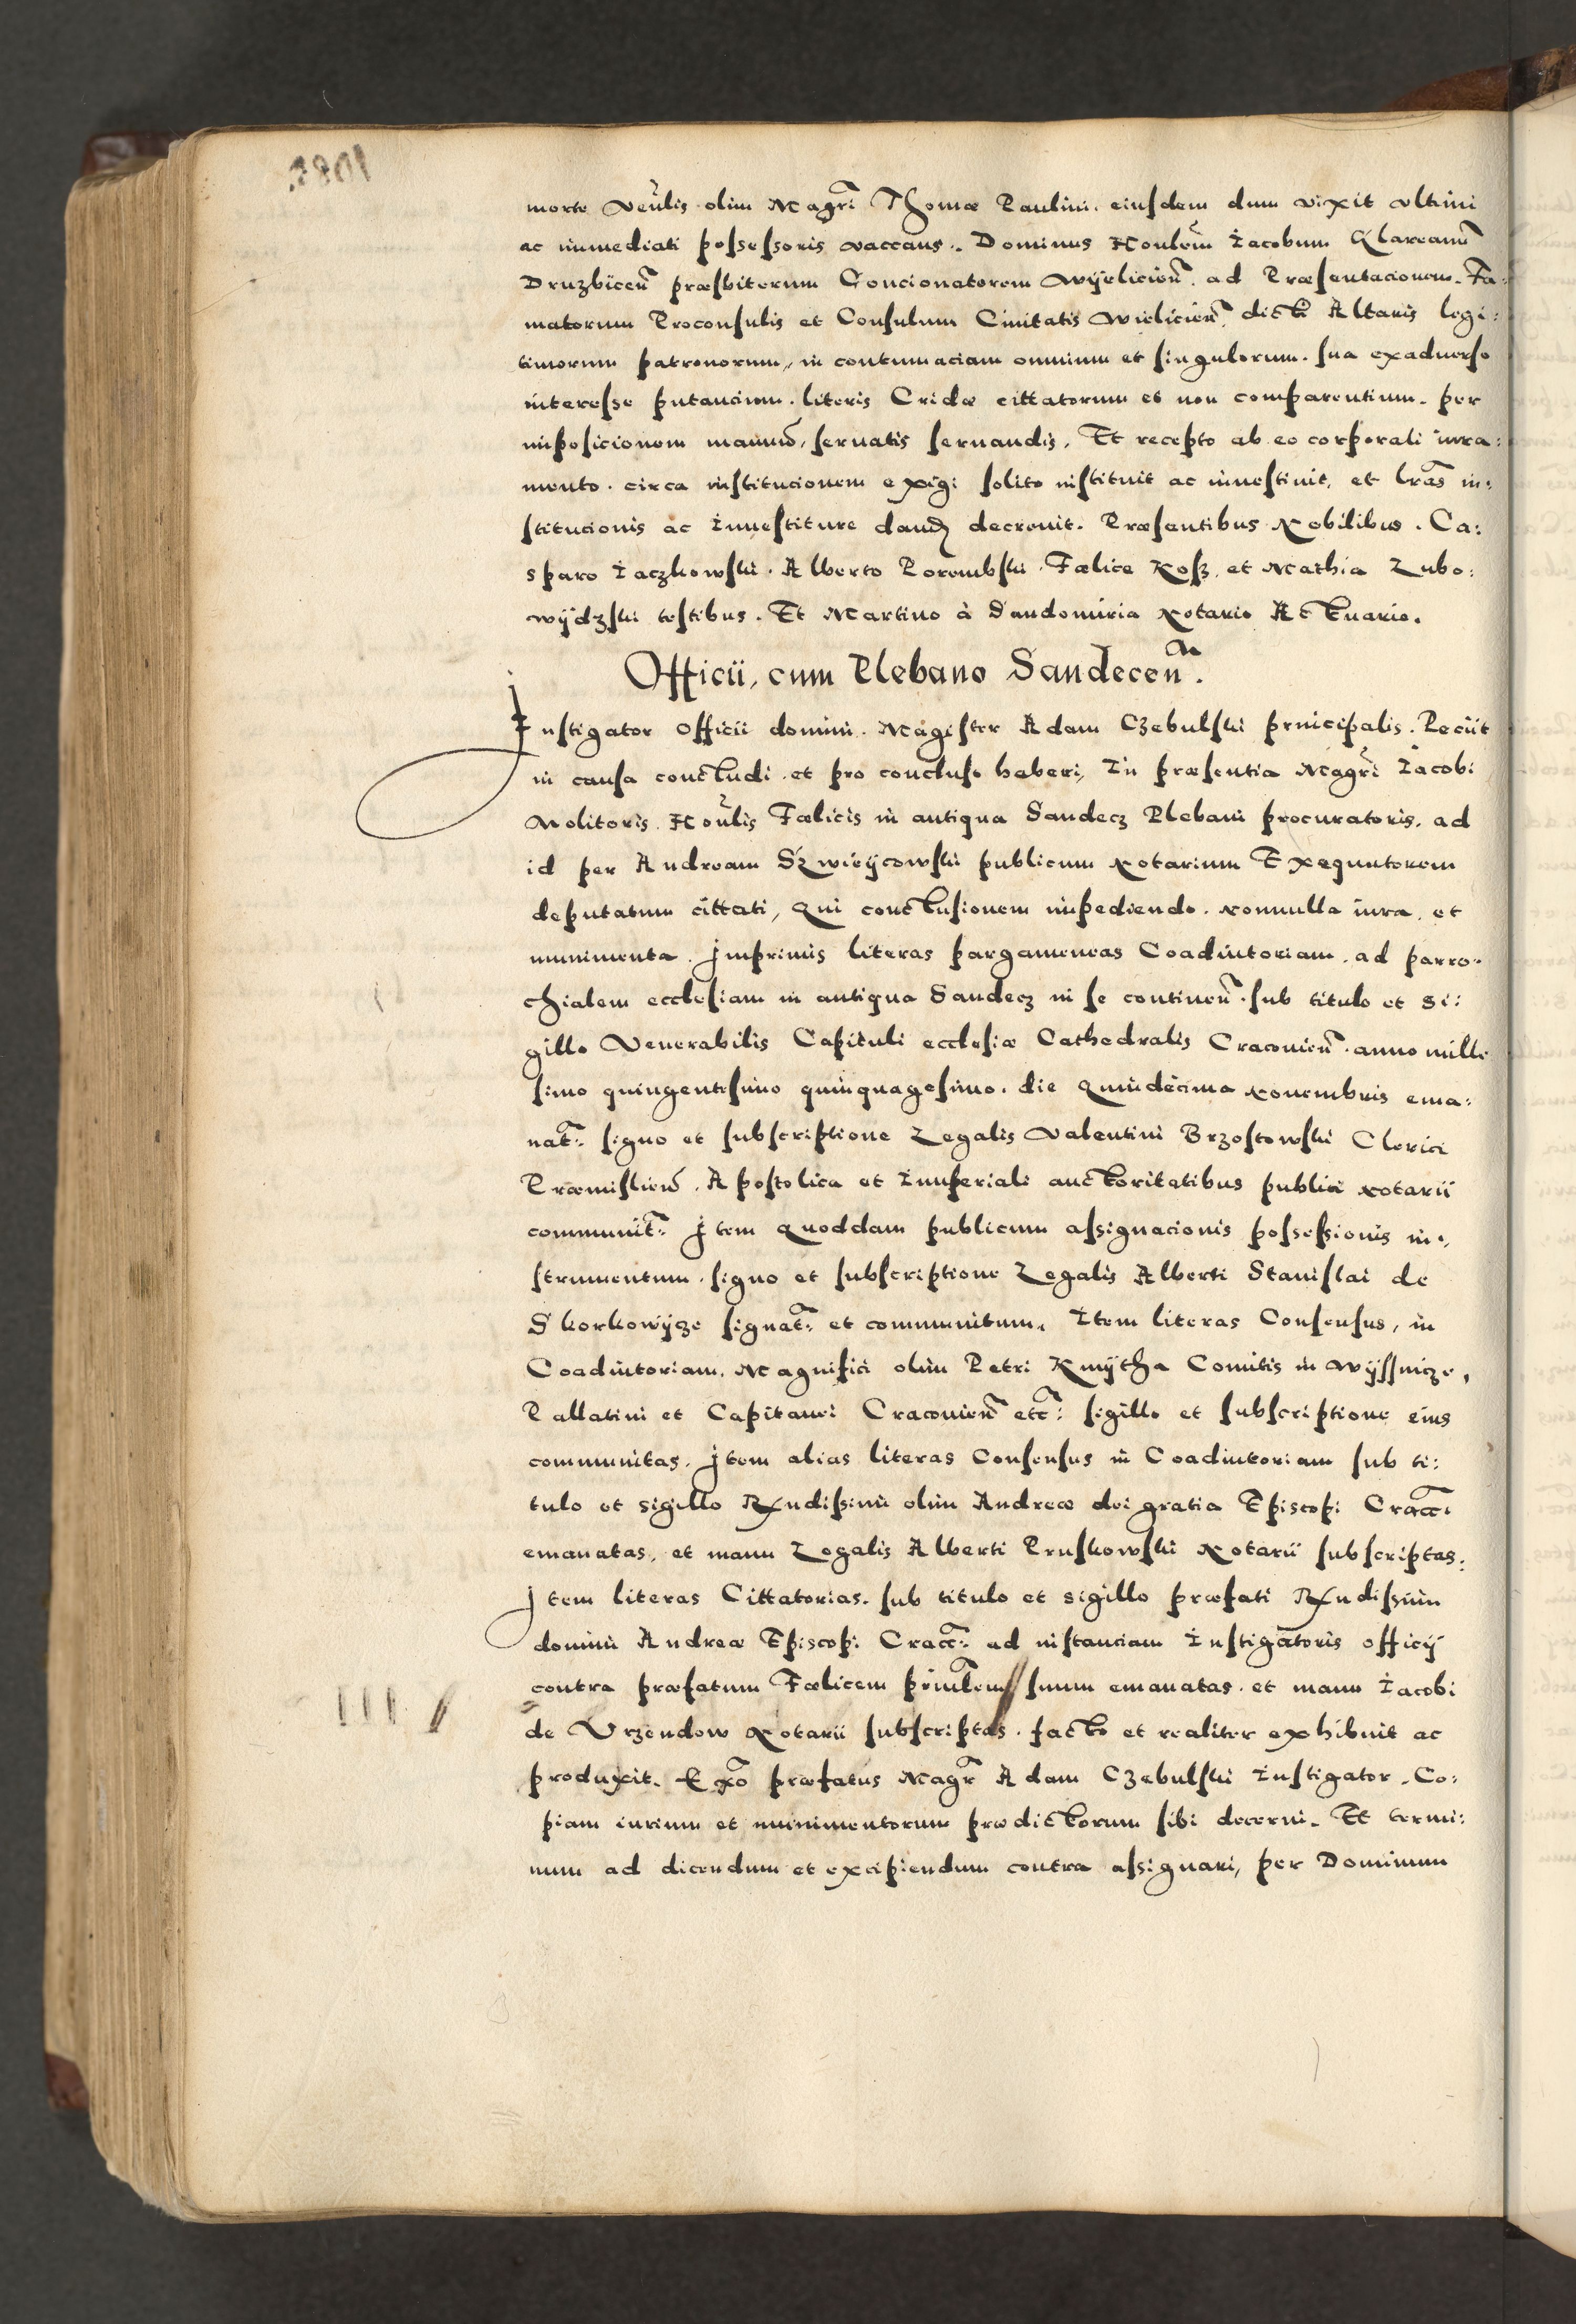 morte Veñlis olim Magr̃i Thomæ Paulini. eiusdem dum vixit vltimi
ac immediati possessoris vaccans. Dominus Honlem̃ Iacobum Klareanũ
Druzbiceñ præsbiterum Concionatorem Wÿelicieñ. ad Præsentacionem. Fa:
matorum Proconsulis et Consulum Ciuitatis Wielicieñ. dicti Altaris legi:
timorum patronorum, in contumaciam omnium et singulorum. sua exaduerso
interesse putancium. literis Cridæ cittatorum et non comparentium. per
imposicionem manuũ, seruatis seruandis. Et recepto ab eo corporali iura:
mento. circa institucionem exigi solito instituit ac inuestiuit, et lr̃as in:
stitucionis ac Inuestiture dand decreuit. Præsentibus Nobilibus. Ca:
sparo Iaczkowski. Alberto Porembski. Fælice Kosz, et Mathia Lubo:
wÿdzski testibus. Et Martino à Sandomiria Notario Actuario.
Officii, cum Plebano Sandeceñ.
Instigator Officii domini. Magister Adam Czebulski principalis. Peciit
in causa concludi. et pro concluso haberi, In præsentia Magr̃i Iacobi
Molitoris. Hoñlis Fælicis in antiqua Sandecz Plebani procuratoris. ad
id per Andream Szwieÿcowski publicum Notarium Exequutorem
deputatum cittati, Qui conclusionem impediendo. Nonnulla iura. et
munimenta. Imprimis literas pargameneas Coadiutoriam. ad parro:
chialem ecclesiam in antiqua Sandecz in se contineñ. sub titulo et si:
gillo Venerabilis Capituli ecclesiæ Cathedralis Cracouieñ. anno mille
simo quingentesimo quinquagesimo. die Quindecima Nouembris ema:
nat̃: signo et subscriptione Legalis Valentini Brzostowski Clerici
Præmislieñ. Apostolica et Imperiali auctoritatibus publici Notarii
communit̃: Item quoddam publicum assignacionis possessionis in:
strumentum. signo et subscriptione Legalis Alberti Stanislai de
Skorkowÿcze signat̃: et communitum. Item literas Consensus, in
Coadiutoriam. Magnifici olim Petri Kmÿtha Comitis in Wÿssnicze,
Pallatini et Capitanei Cracouieñ etc̃: sigillo et subscriptione eius
communitas. Item alias literas Consensus in Coadiutoriam sub ti:
tulo et sigillo Rndissimi olim Andreæ dei gratia Episcopi Cracc̃:
emanatas, et manu Legalis Alberti Pruskowski Notarii subscriptas.
Item literas Cittatorias. sub titulo et sigillo præfati Rndissimi
domini Andreæ Episcopi Cracc̃: ad instanciam Instigatoris officÿ
contra præfatum Fælicem suum emanatas. et manu Iacobi
de Vrzendow Notarii subscriptas. facto et realiter exhibuit ac
produxit. Exõ præfatus Magr̃ Adam Czebulski Instigator. Co:
piam iurium et munimentorum prædictorum sibi decerni. Et termi:
num ad dicendum et excipiendum contra assignari, per Dominum